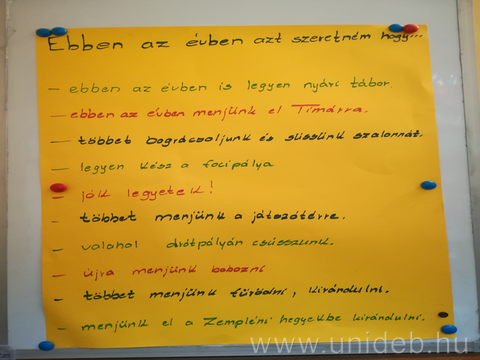 Ebben az évben azt szeretném hogy...
- ebben az évben is legyen nyári tábor.
- ebben az évben menjünk el Tímárra.
- többet bográcsoljunk és süssünk szalonnát.
- legyen kész a focipálya
- jók legyetek!
- többet menjünk a játszótérre.
- valahol drótpályán csússzunk.
- újra menjünk bobozni
- többet menjünk fürdeni, kirándulni.
- menjünk el a Zempléni hegyekbe kirándulni.
www.unideb.hu